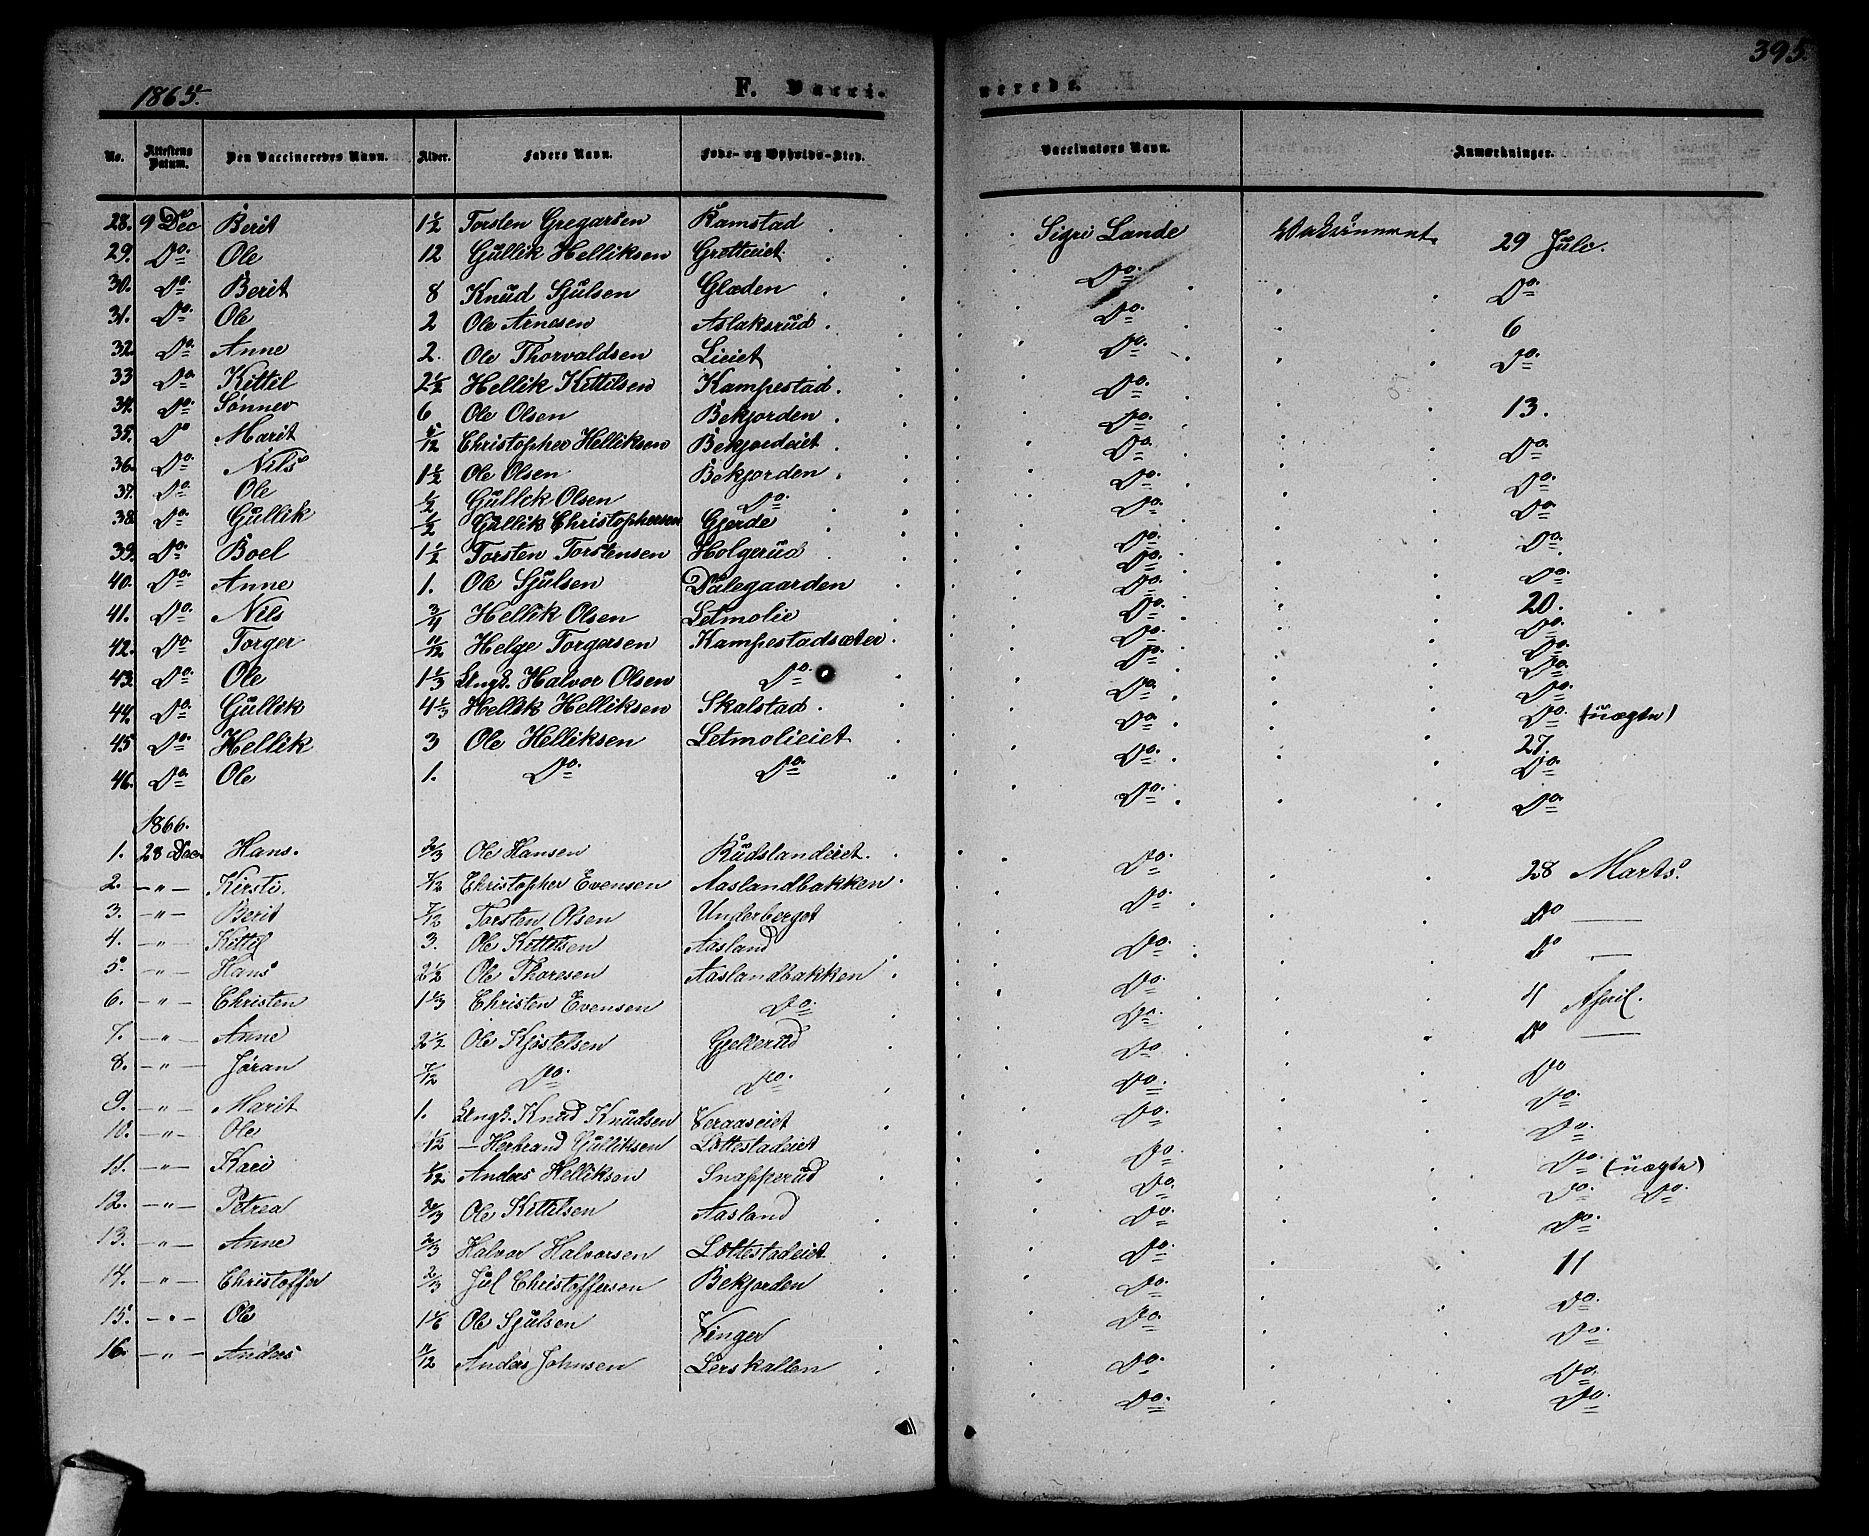 395.
1865.
F. Vacci- nerede.
No. Attestens Datum. Den Vaccineredes Navn. Alder. Faders Navn. Føde- og Opholds-Sted. Vaccinators Navn. Anmærkninger.
28. 9 Dec Berit 1½ Torsten Gregarsen Ramstad Sigri Lande 29 Juli.
29. Do. Ole 12 Gullik Helliksen Gretteiet. Do. Do.
30. Do. Berit 8 Knud Sjulsen Glæden Do. 6
31. Do. Ole 2 Ole Arnesen Aslaksrud. Do. Do.
32. Do. Anne 2. Ole Thorvaldsen Lieiet Do.
33 Do. Kittil 2½ Hellik Kittilsen Kampestad. Do. 13.
34. Do. Sønnev 6 Ole Olsen Bekjorden. Do. Do.
35. Do Marit 5/12 Christopher Helliksen Bekjordeiet. Do. Do.
36. Do. Nils 1½ Ole Olsen Bekjorden. Do. Do.
37. Do Ole ½ Gullik Olsen Do. Do. Do.
38. Do. Gullik ½ Gullik Christophersen Gjerde Do. Do.
39. Do. Boel 1½ Torsten Torstensen Holgerud Do. 20.
40. Do. Anne 1. Ole Sjulsen Dalegaarden Do. Do.
41. Do. Nils 3/4 Hellik Olsen Letmolie Do. Do.
42. Do. Torger 11/12 Helge Torgersen Kampestadsæter. Do. Do.
43. Do. Ole 1⅓ Ungk. Halvor Olsen Do. Do. Do. (uægte)
44. Do. Gullik 4⅓ Hellik Helliksen Skalstad. Do. 27.
45 Do. Hellik 3 Ole Helliksen Letmolieiet Do. Do.
46. Do. Ole 1. Do. Do. Do. Do.
1866.
1. 28 Dec. Hans. 2/3 Ole Hansen Rudslandeiet. Do. 28 Marts.
2. -"- Kirsti. 7/12 Christopher Evensen Aaslandbakken. Do. Do
3. -"- Berit 7/12 Torsten Olsen Underberget Do. Do
4. -"- Kittil 3. Ole Kittelsen Aasland Do. 4 April.
5. -"- Hans 2½ Ole Thoresen Aaslandbakken. Do. Do
6. -"- Christen Christen Evensen Do. Do. Do
7. -"- Anne 2½ Ole Kjøstelsen Gjellerud Do. Do.
8. -"- Jøran 7/12 Do. Do. Do. Do.
9. -"- Marit 1. Ungk. Knud Knudsen Veraaseiet Do. Do. (uægte)
10. -"- Ole Herbrand Gulliksen Lottestadeiet Do. Do. Do.
11. -"- Kari Anders Helliksen Snapperud Do. Do.
12. -"- Petrea 2/3 Ole Kittilsen Aasland Do. 11
13. -"- Anne 2/3 Halvor Halvorsen Lottestadeiet Do. Do.
14. -"- Christoffer 2/3 Juel Christoffersen Bekjorden Do. Do.
15. -"- Ole 1⅙ Ole Sjulsen Vinger Do. Do.
16. -"- Anders Anders Johnsen Lerskallen Do. Do.